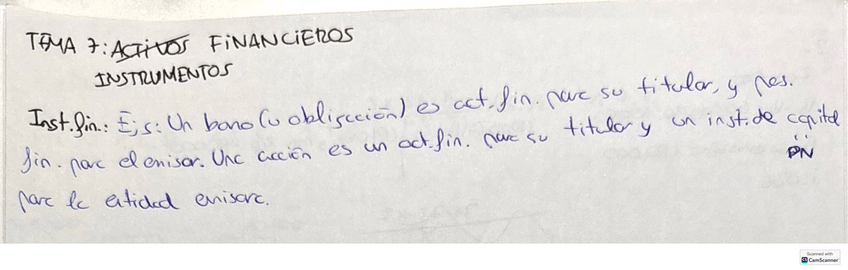 TEMA 7: ACTIVOS FINANCIEROS
INSTRUMENTOS
Inst. fin.: Ejs: Un bono (u obligación) es act. fin. para su titular, y pas.
fin. para el emisor. Una acción es un act. fin. para su titular y un inst. de capital
PN
para la entidad emisora.
Scanned with
CamScanner